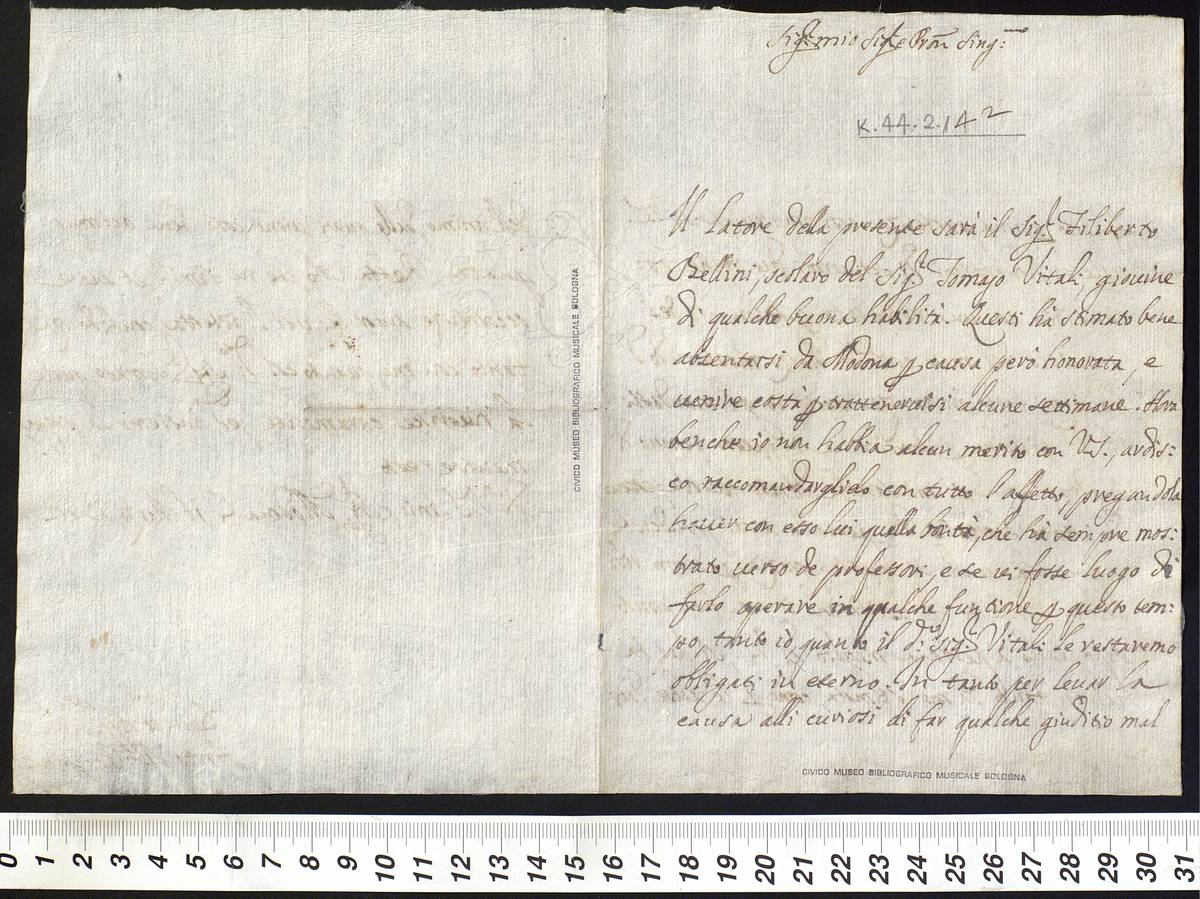 Sig.r mio Sig.re e Pron Sing:mo
K.44.2.142
Il Latore della presente sarà il Sig.r Filiberto
Bellini, scolaro del Sig.r Tomaso Vitali, giouine
di qualche buona habilità. Questi hà stimato bene
absentarsi da Modona p causa però honorata, e
uenire costà p tratteneruisi alcune settimane. Hora
benche io non habbia alcun merito con V.S., ardis:
co raccomandarglielo con tutto l'affetto, pregandola
hauer con esso lui quella bontà, che hà sempre mos:
trato uerso de professori, e se ui fosse luogo di
farlo operare in qualche funzione p questo tem:
po, tanto io, quanto il d.o Sig.r Vitali le restaremo
obligati in eterno. In tanto per leuar la
causa alli curiosi di far qualche giuditio mal
CIVICO MUSEO BIBLIOGRAFICO MUSICALE BOLOGNA
CIVICO MUSEO BIBLIOGRAFICO MUSICALE BOLOGNA
0 1 2 3 4 5 6 7 8 9 10 11 12 13 14 15 16 17 18 19 20 21 22 23 24 25 26 27 28 29 30 31